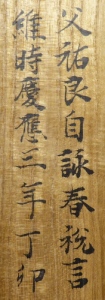 父祐良自詠春祝言
維時慶應三年丁卯